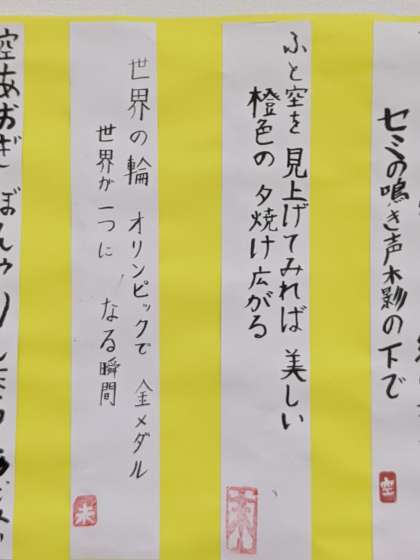 セミの鳴き声木影の下で
空
ふと空を 見上げてみれば 美しい
橙色の 夕焼け広がる
世界の輪 オリンピックで 金メダル
世界が一つに なる瞬間
未
空あおぎ ぼんやり